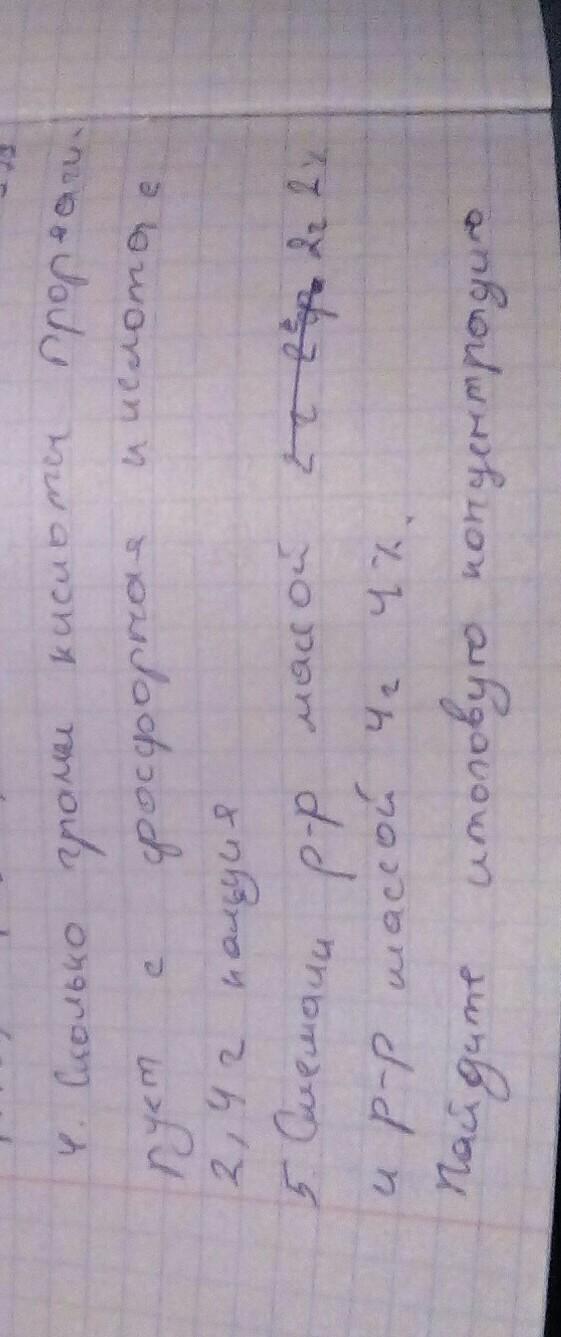 4. Сколько грамм кислоты прореаги.
рует с фосфорная кислота с
2,4 г кальция
5. Смешали р-р массой 2г 2%
и р-р массой 4г 4%.
Найдите итоговую концентрацию